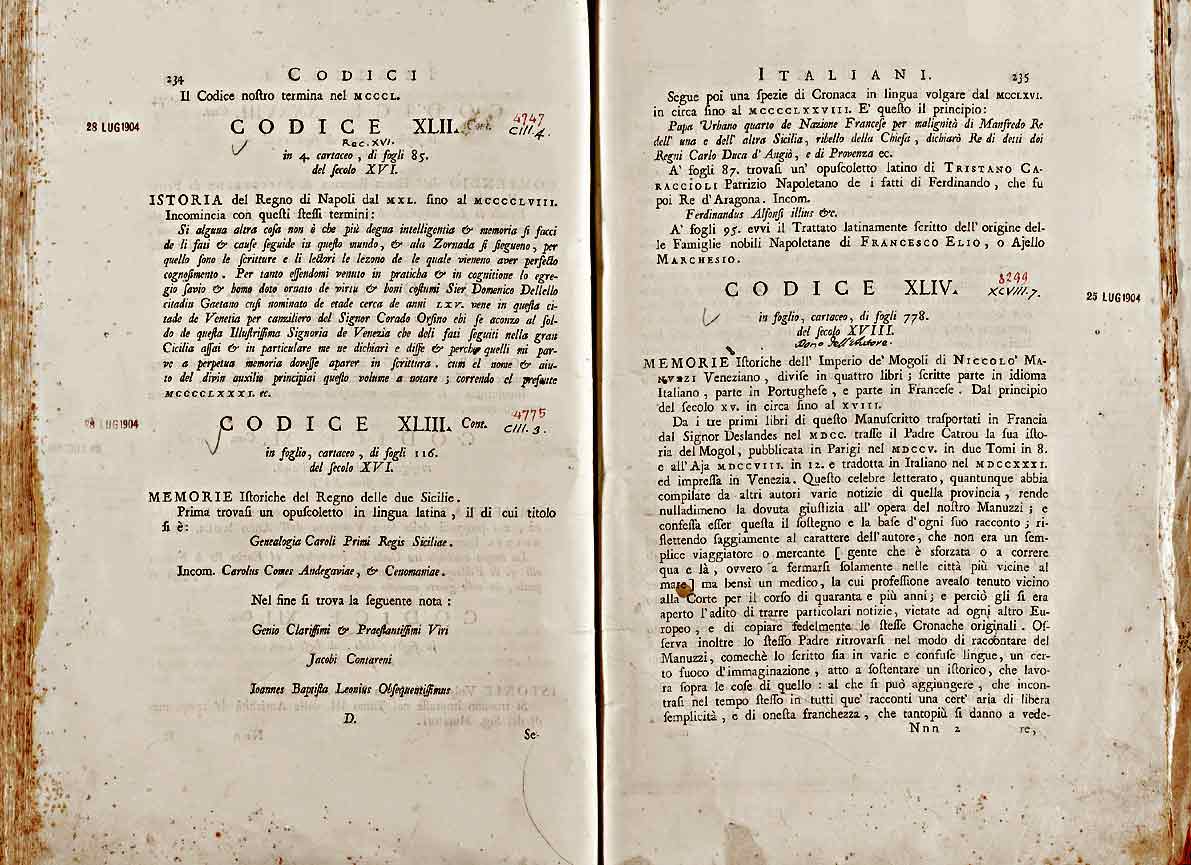 234 CODICI
Il Codice noſtro termina nel MCCCL.
28 LUG 1904
CODICE XLII. Cont. 4747
CIII.4.
Rec. XVI.
in 4. cartaceo, di fogli 85.
del ſecolo XVI.
ISTORIA del Regno di Napoli dal MXL. ſino al MCCCCLVIII.
Incomincia con queſti ſteſſi termini:
Si alguna altra coſa non è che più degna intelligentia & memoria ſi facci
de li fati & cauſe ſeguide in queſto mundo, & ala Zornada ſi ſiegueno, per
quello ſono le ſcritture e li lectori le lezono de le quale vieneno aver perfecto
cognoſimento. Per tanto eſſendomi venuto in praticha & in cognitione lo egre-
gio ſavio & homo doto ornato de virtu & boni coſtumi Sier Domenico Dellello
citadin Gaetano cuſi nominato de etade cerca de anni LXV. vene in queſta ci-
tade de Venetia per canziliero del Signor Corado Orſino chi ſe aconzo al ſol-
do de queſta Illuſtriſſima Signoria de Venezia che deli fati ſeguiti nella gran
Cicilia aſſai & in particulare me ne dichiari e diſſe & perchè quelli mi par-
ve a perpetua memoria doveſſe aparer in ſcrittura. cum el nome & aiu-
to del divin auxilio principiai queſto volume a notare; correndo el preſente
MCCCCLXXXI. ec.
28 LUG 1904
CODICE XLIII. Cont. 4775
CIII.3.
in foglio, cartaceo, di fogli 116.
del ſecolo XVI.
MEMORIE Iſtoriche del Regno delle due Sicilie.
Prima trovaſi un opuſcoletto in lingua latina, il di cui titolo
ſi è:
Genealogia Caroli Primi Regis Siciliae.
Incom. Carolus Comes Andegaviae, & Cenomaniae.
Nel fine ſi trova la ſeguente nota:
Genio Clariſſimi & Praeſtantiſſimi Viri
Jacobi Contareni
Joannes Baptiſta Leonius Obſequentiſſimus
D.
Se-
ITALIANI. 235
Segue poi una ſpezie di Cronaca in lingua volgare dal MCCLXVI.
in circa ſino al MCCCCLXXVIII. E' queſto il principio:
Papa Urbano quarto de Nazione Franceſe per malignità di Manfredo Re
dell' una e dell' altra Sicilia, ribello della Chieſa, dichiarò Re di detti doi
Regni Carlo Duca d'Angiò, e di Provenza ec.
A' fogli 87. trovaſi un' opuſcoletto latino di TRISTANO CA-
RACCIOLI Patrizio Napoletano de i fatti di Ferdinando, che fu
poi Re d'Aragona. Incom.
Ferdinandus Alfonſi illius &c.
A' fogli 95. evvi il Trattato latinamente ſcritto dell' origine del-
le Famiglie nobili Napoletane di FRANCESCO ELIO, o Ajello
MARCHESIO.
CODICE XLIV. 8299
XCVIII.7.
25 LUG 1904
in foglio, cartaceo, di fogli 778.
del ſecolo XVIII.
Dono dell'Autore.
MEMORIE Iſtoriche dell' Imperio de' Mogoli di NICCOLO' MA-
NUZZI Veneziano, diviſe in quattro libri; ſcritte parte in idioma
Italiano, parte in Portugheſe, e parte in Franceſe. Dal principio
del ſecolo XV. in circa ſino al XVIII.
Da i tre primi libri di queſto Manuſcritto traſportati in Francia
dal Signor Deslandes nel MDCC. traſſe il Padre Catrou la ſua iſto-
ria del Mogol, pubblicata in Parigi nel MDCCV. in due Tomi in 8.
e all'Aja MDCCVIII. in 12. e tradotta in Italiano nel MDCCXXXI.
ed impreſſa in Venezia. Queſto celebre letterato, quantunque abbia
compilate da altri autori varie notizie di quella provincia, rende
nulladimeno la dovuta giuſtizia all' opera del noſtro Manuzzi; e
confeſſa eſſer queſta il ſoſtegno e la baſe d'ogni ſuo racconto; ri-
flettendo ſaggiamente al carattere dell'autore, che non era un ſem-
plice viaggiatore o mercante [ gente che è sforzata o a correre
qua e là, ovvero a fermarſi ſolamente nelle città più vicine al
mare ] ma bensì un medico, la cui profeſſione avealo tenuto vicino
alla Corte per il corſo di quaranta e più anni; e perciò gli ſi era
aperto l'adito di trarre particolari notizie, vietate ad ogni altro Eu-
ropeo, e di copiare fedelmente le ſteſſe Cronache originali. Oſ-
ſerva inoltre lo ſteſſo Padre ritrovarſi nel modo di raccontare del
Manuzzi, comechè lo ſcritto ſia in varie e confuſe lingue, un cer-
to fuoco d'immaginazione, atto a ſoſtentare un iſtorico, che lavo-
ra ſopra le coſe di quello: al che ſi può aggiungere, che incon-
traſi nel tempo ſteſſo in tutti que' racconti una cert' aria di libera
ſemplicità, e di oneſta franchezza, che tantopiù ſi danno a vede-
Nnn 2 re,